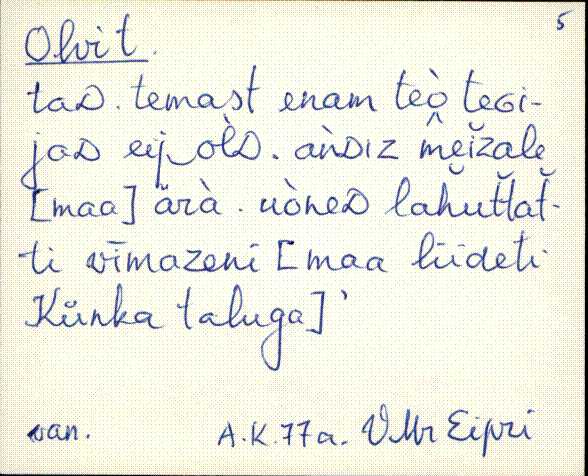 5
Olvit.
taD. temast enam teò̭ teGi-
jaD eij olD̀. àǹDIZ mêiz̆ale
[maa] ärà. ùòneD lah̆ŭt̆t̆at̆-
ti vīmazeni [maa liideti
Künka taluga]'
van. A.K. 77a. VMr Eipri